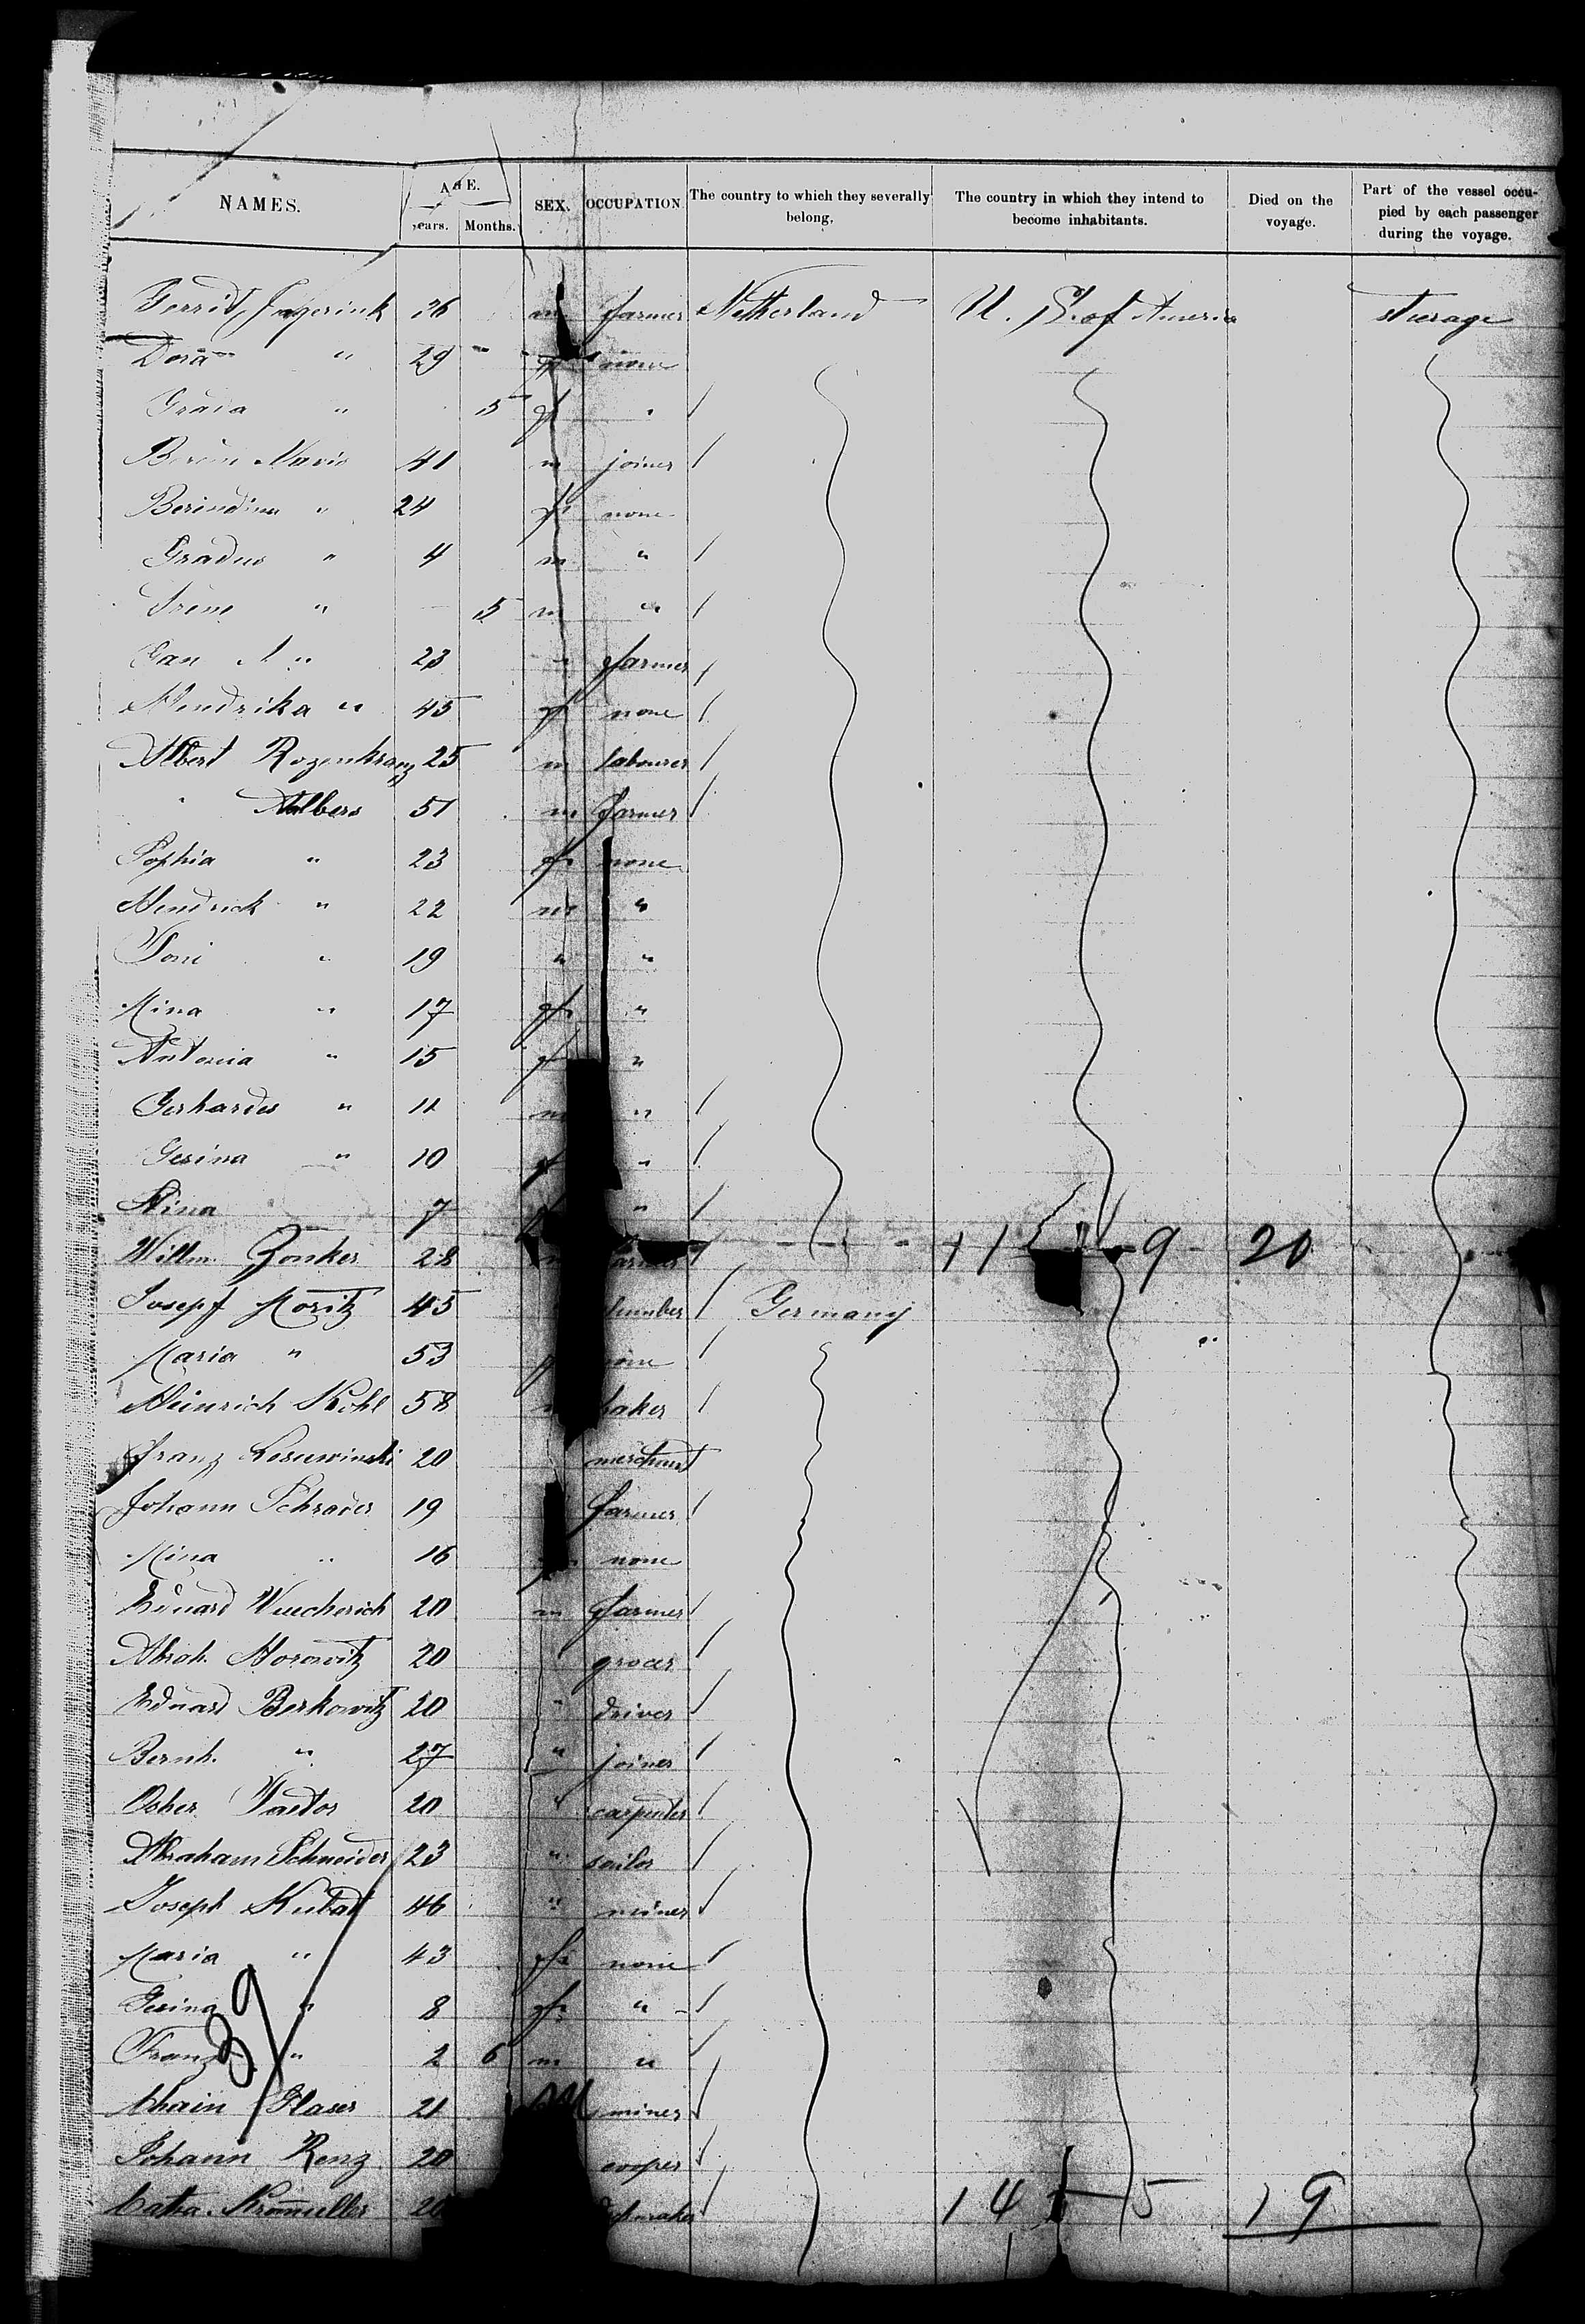 NAMES. AGE. years. Months. SEX. OCCUPATION. The country to which they severally belong. The country in which they intend to become inhabitants. Died on the voyage. Part of the vessel occupied by each passenger during the voyage.
Gerrit 26 m farmer Netherland U. S. of America steerage
Dora " 29 none
" 5 f "
41 m joiner
Berindina " 24 f none
Gradus " 4 m "
" 5 m "
Jan " 23 " farmer
Hendrika " 45 f none
Albert Rozenkranz 25 m labourer
" Albers 51 m farmer
Sophia " 23 f none
Hendrick " 22 m "
Toni " 19 " "
Mina " 17 f "
Antonia " 15 f "
Gerhardes " 11 m "
Gesina " 10 f "
Stina 7 "
Willm. Zonker 28 farmer 11 9 20
Josepf Moritz 45 Germany
Maria " 53 none
Heinrich Kohl 58 baker
Franz 20 merchant
Johann Schrader 19 farmer
Mina " 16 none
Eduard 20 m farmer
Abrah. Horowitz 20 grocer
Eduard Berkowitz 20 " driver
Bernh. " 27 " joiner
Osher 20 " carpenter
Abraham Schneider 23 "
Joseph Kubat 46 " miner
Maria " 43 f none
" 8 f "
Franz " 2 6 m "
39
Glaser 21 miner
Johann Renz 20 cooper
14 5 19